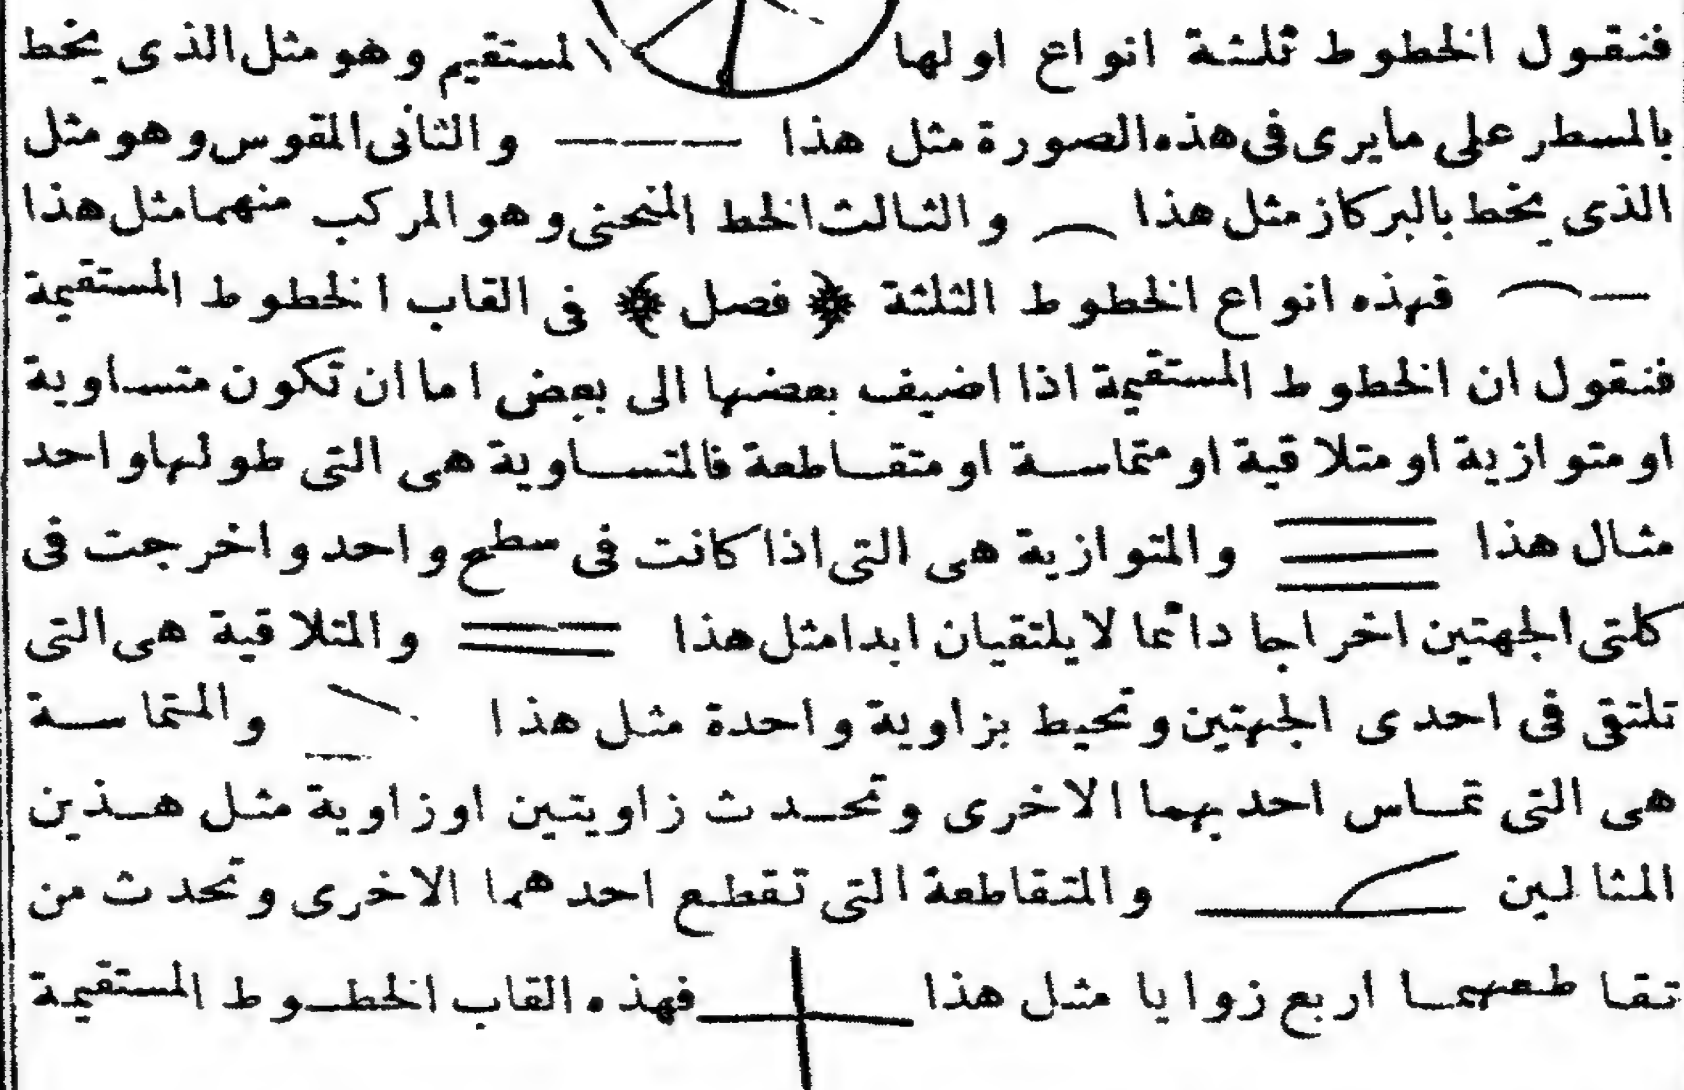 فنقول الخطوط ثلثة انواع اولها المستقيم وهو مثل الذى يخط
بالمسطر على مايرى فى هذه الصورة مثل هذا والثانى المقوس وهو مثل
الذى يخط بالبركاز مثل هذا والثالث الخط المنحنى وهو المركب منهما مثل هذا
فهذه انواع الخطوط الثلثة ﴿فصل﴾ فى القاب الخطوط المستقيمة
فنقول ان الخطوط المستقيمة اذا اضيف بعضها الى بعض اما ان تكون متساوية
او متوازية او متلاقية او متماسة او متقاطعة فالمتساوية هى التى طولها واحد
مثال هذا والمتوازية هى التى اذا كانت فى سطح واحد واخرجت فى
كلتى الجهتين اخراجا دائما لا يلتقيان ابدا مثل هذا والمتلاقية هى التى
تلتقى فى احدى الجهتين وتحيط بزاوية واحدة مثل هذا والمتماسة
هى التى تماس احديهما الاخرى وتحدث زاويتين او زاوية مثل هذين
المثالين والمتقاطعة التى تقطع احدهما الاخرى وتحدث من
تقاطعهما اربع زوايا مثل هذا فهذه القاب الخطوط المستقيمة